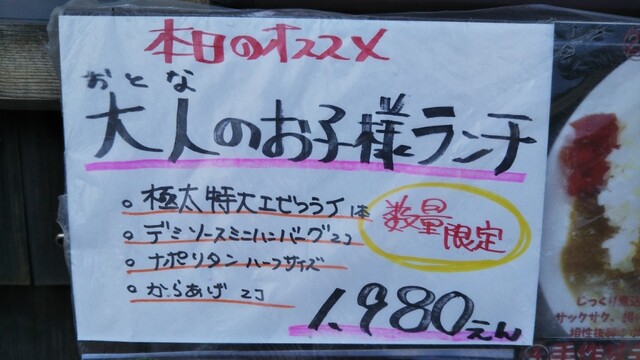 本日のオススメ
おとな
大人のお子様ランチ
極太特大エビフライ1本
デミソースミニハンバーグ2コ
ナポリタンハーフサイズ
からあげ2コ
数量限定
1,980えん
じっくり煮
サックサク、
相性抜群の